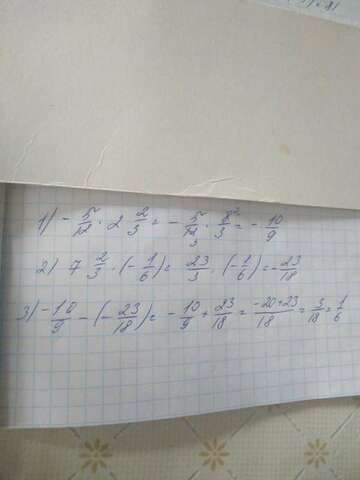 1) - 5/12 · 2 2/3 = - 5/12 3 · 8 2/3 = - 10/9
2) 7 2/3 · (- 1/6) = 23/3 · (- 1/6) = - 23/18
3) - 10/9 - (- 23/18) = - 10/9 + 23/18 = -20+23/18 = 3/18 = 1/6